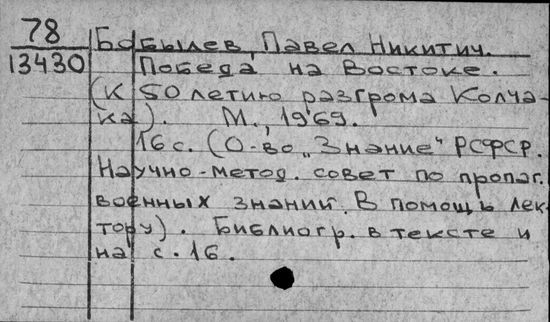 78
13430
Бобылев, Павел Никитич.
Победа на Востоке.
(К 50летию разгрома Колча-
ка). М., 1969.
16с. (О-во „Знание" РСФСР.
Научно-метод. совет по пропаг.
военных знаний. В помощь лек-
тору). Библиогр. в тексте и
на с.16.